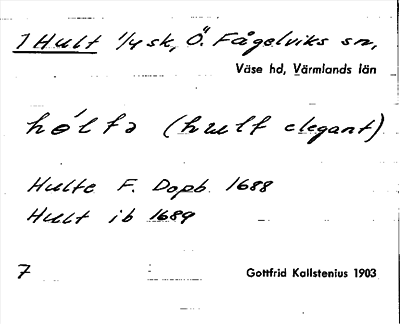 1 Hult 1/4 sk, Ö. Fågelviks sn,
Väse hd, Värmlands län
hóltə (hult elegant)
Hulte F. Dopb. 1688
Hult ib 1689
7
Gottfrid Kallstenius 1903